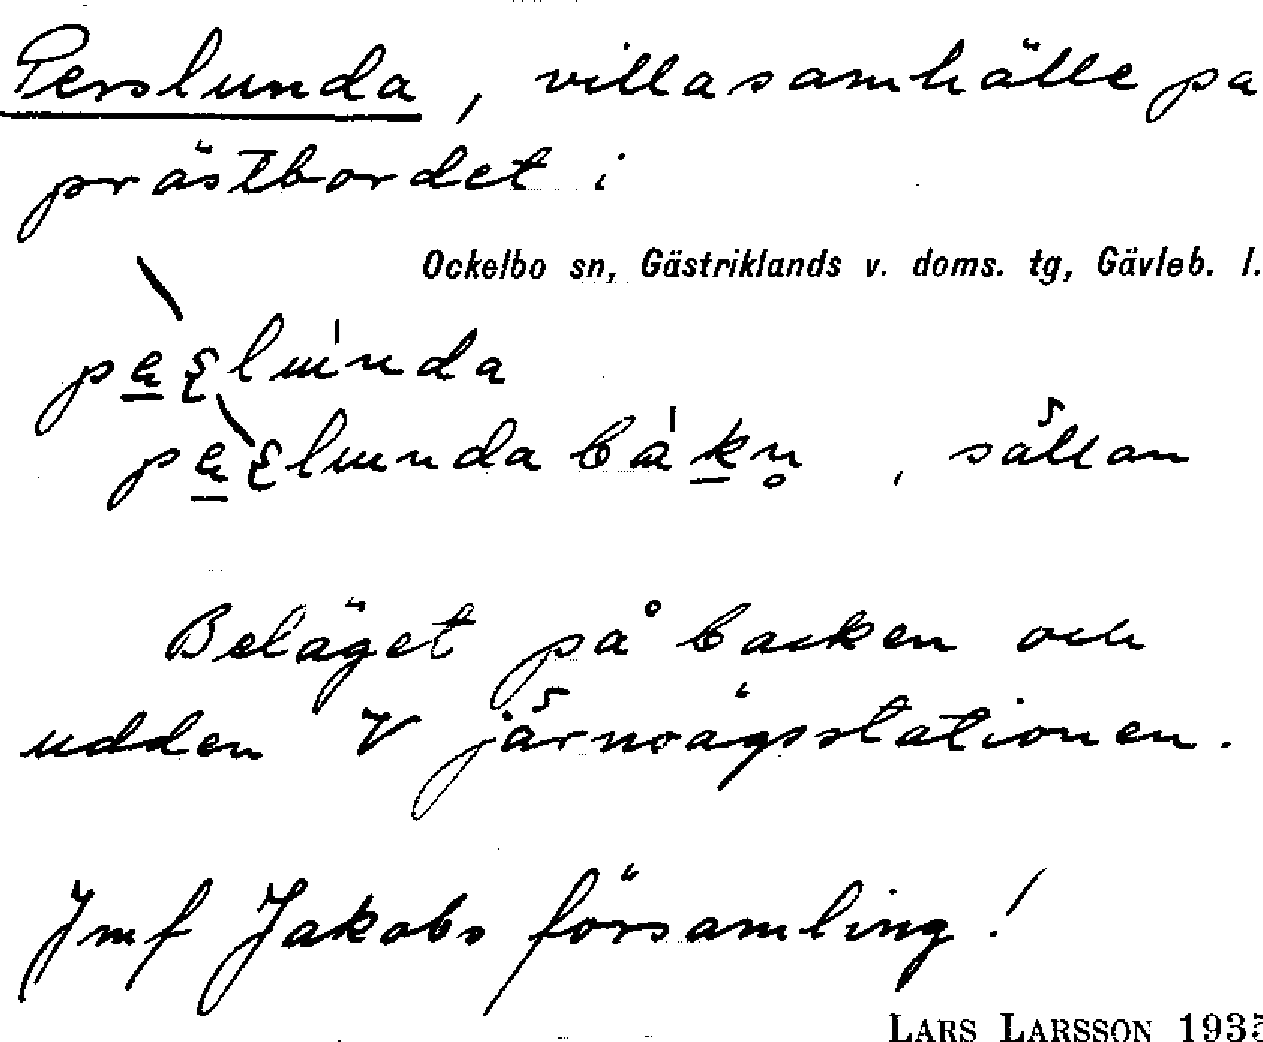 Perslunda, villasamhälle pa
prästbordet i
Ockelbo sn, Gästriklands v. doms. tg, Gävleb. l.
Beläget på backen och
udden V järnvägsstationen.
Jmf Jakobs församling!
, sällan
LARS LARSSON 1935